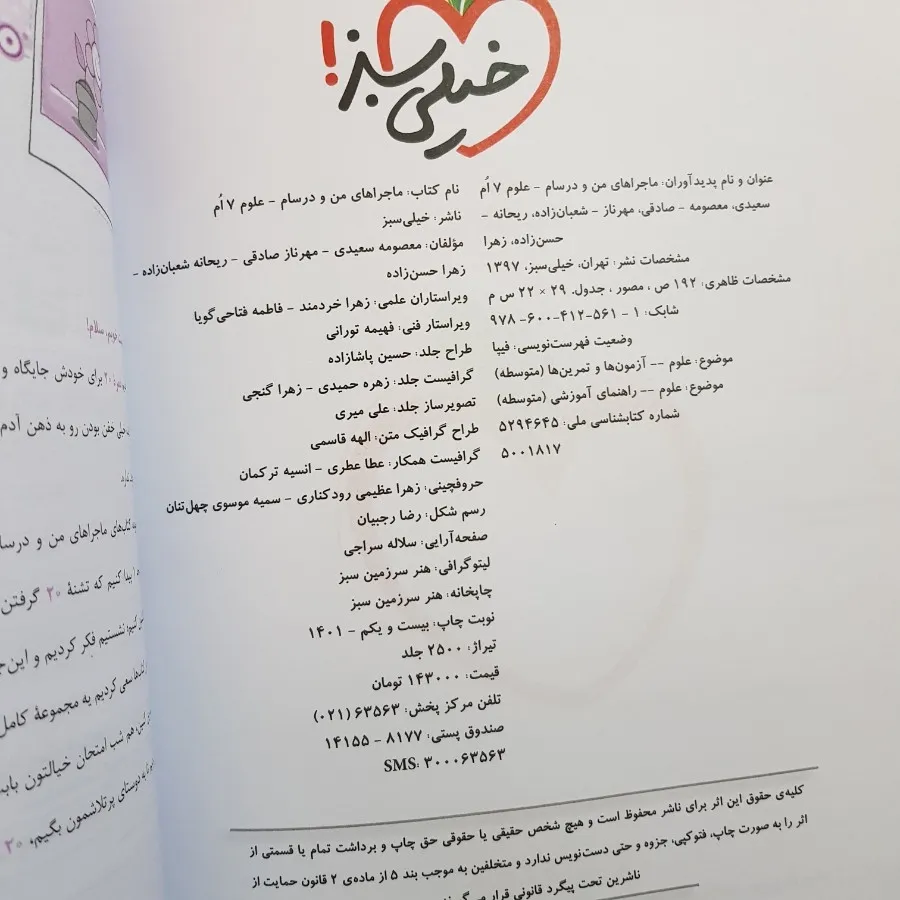 خیلی سبز!
عنوان و نام پدیدآوران: ماجراهای من و درسام - علوم ۷ اُم
سعیدی، معصومه - صادقی، مهرناز - شعبان‌زاده، ریحانه -
حسن‌زاده، زهرا
مشخصات نشر: تهران، خیلی‌سبز، ۱۳۹۷
مشخصات ظاهری: ۱۹۲ ص ، مصور ، جدول. ۲۹ × ۲۲ س م
شابک: ۱ - ۵۶۱-۴۱۲-۶۰۰-۹۷۸
وضعیت فهرست‌نویسی: فیپا
موضوع: علوم -- آزمون‌ها و تمرین‌ها (متوسطه)
موضوع: علوم -- راهنمای آموزشی (متوسطه)
شماره کتابشناسی ملی: ۵۲۹۴۶۴۵
۵۰۰۱۸۱۷
نام کتاب: ماجراهای من و درسام - علوم ۷ اُم
ناشر: خیلی‌سبز
مؤلفان: معصومه سعیدی - مهرناز صادقی - ریحانه شعبان‌زاده -
زهرا حسن‌زاده
ویراستاران علمی: زهرا خردمند - فاطمه فتاحی‌گویا
ویراستار فنی: فهیمه تورانی
طراح جلد: حسین پاشازاده
گرافیست جلد: زهره حمیدی - زهرا گنجی
تصویرساز جلد: علی میری
طراح گرافیک متن: الهه قاسمی
گرافیست همکار: عطا عطری - انسیه ترکمان
حروفچینی: زهرا عظیمی رودکناری - سمیه موسوی چهل‌تنان
رسم شکل: رضا رجبیان
صفحه‌آرایی: سلاله سراجی
لیتوگرافی: هنر سرزمین سبز
چاپخانه: هنر سرزمین سبز
نوبت چاپ: بیست و یکم - ۱۴۰۱
تیراژ: ۲۵۰۰ جلد
قیمت: ۱۴۳۰۰۰ تومان
تلفن مرکز پخش: ۶۳۵۶۳ (۰۲۱)
صندوق پستی: ۸۱۷۷ - ۱۴۱۵۵
SMS: ۳۰۰۰۶۳۵۶۳
کلیه‌ی حقوق این اثر برای ناشر محفوظ است و هیچ شخص حقیقی یا حقوقی حق چاپ و برداشت تمام یا قسمتی از
اثر را به صورت چاپ، فتوکپی، جزوه و حتی دست‌نویس ندارد و متخلفین به موجب بند ۵ از ماده‌ی ۲ قانون حمایت از
ناشرین تحت پیگرد قانونی قرار
سلام!
۲۰ برای خودش جایگاه و
خفن بودن رو به ذهن آدم
کتاب‌های ماجراهای من و درسا
پیدا کنیم که تشنهٔ ۲۰ گرفتن
کنیم؛ نشستیم فکر کردیم و این‌ج
سعی کردیم یه مجموعهٔ کامل
هم شب امتحان خیالتون باب
دوستای پرتلاشمون بگیم، ۲۰